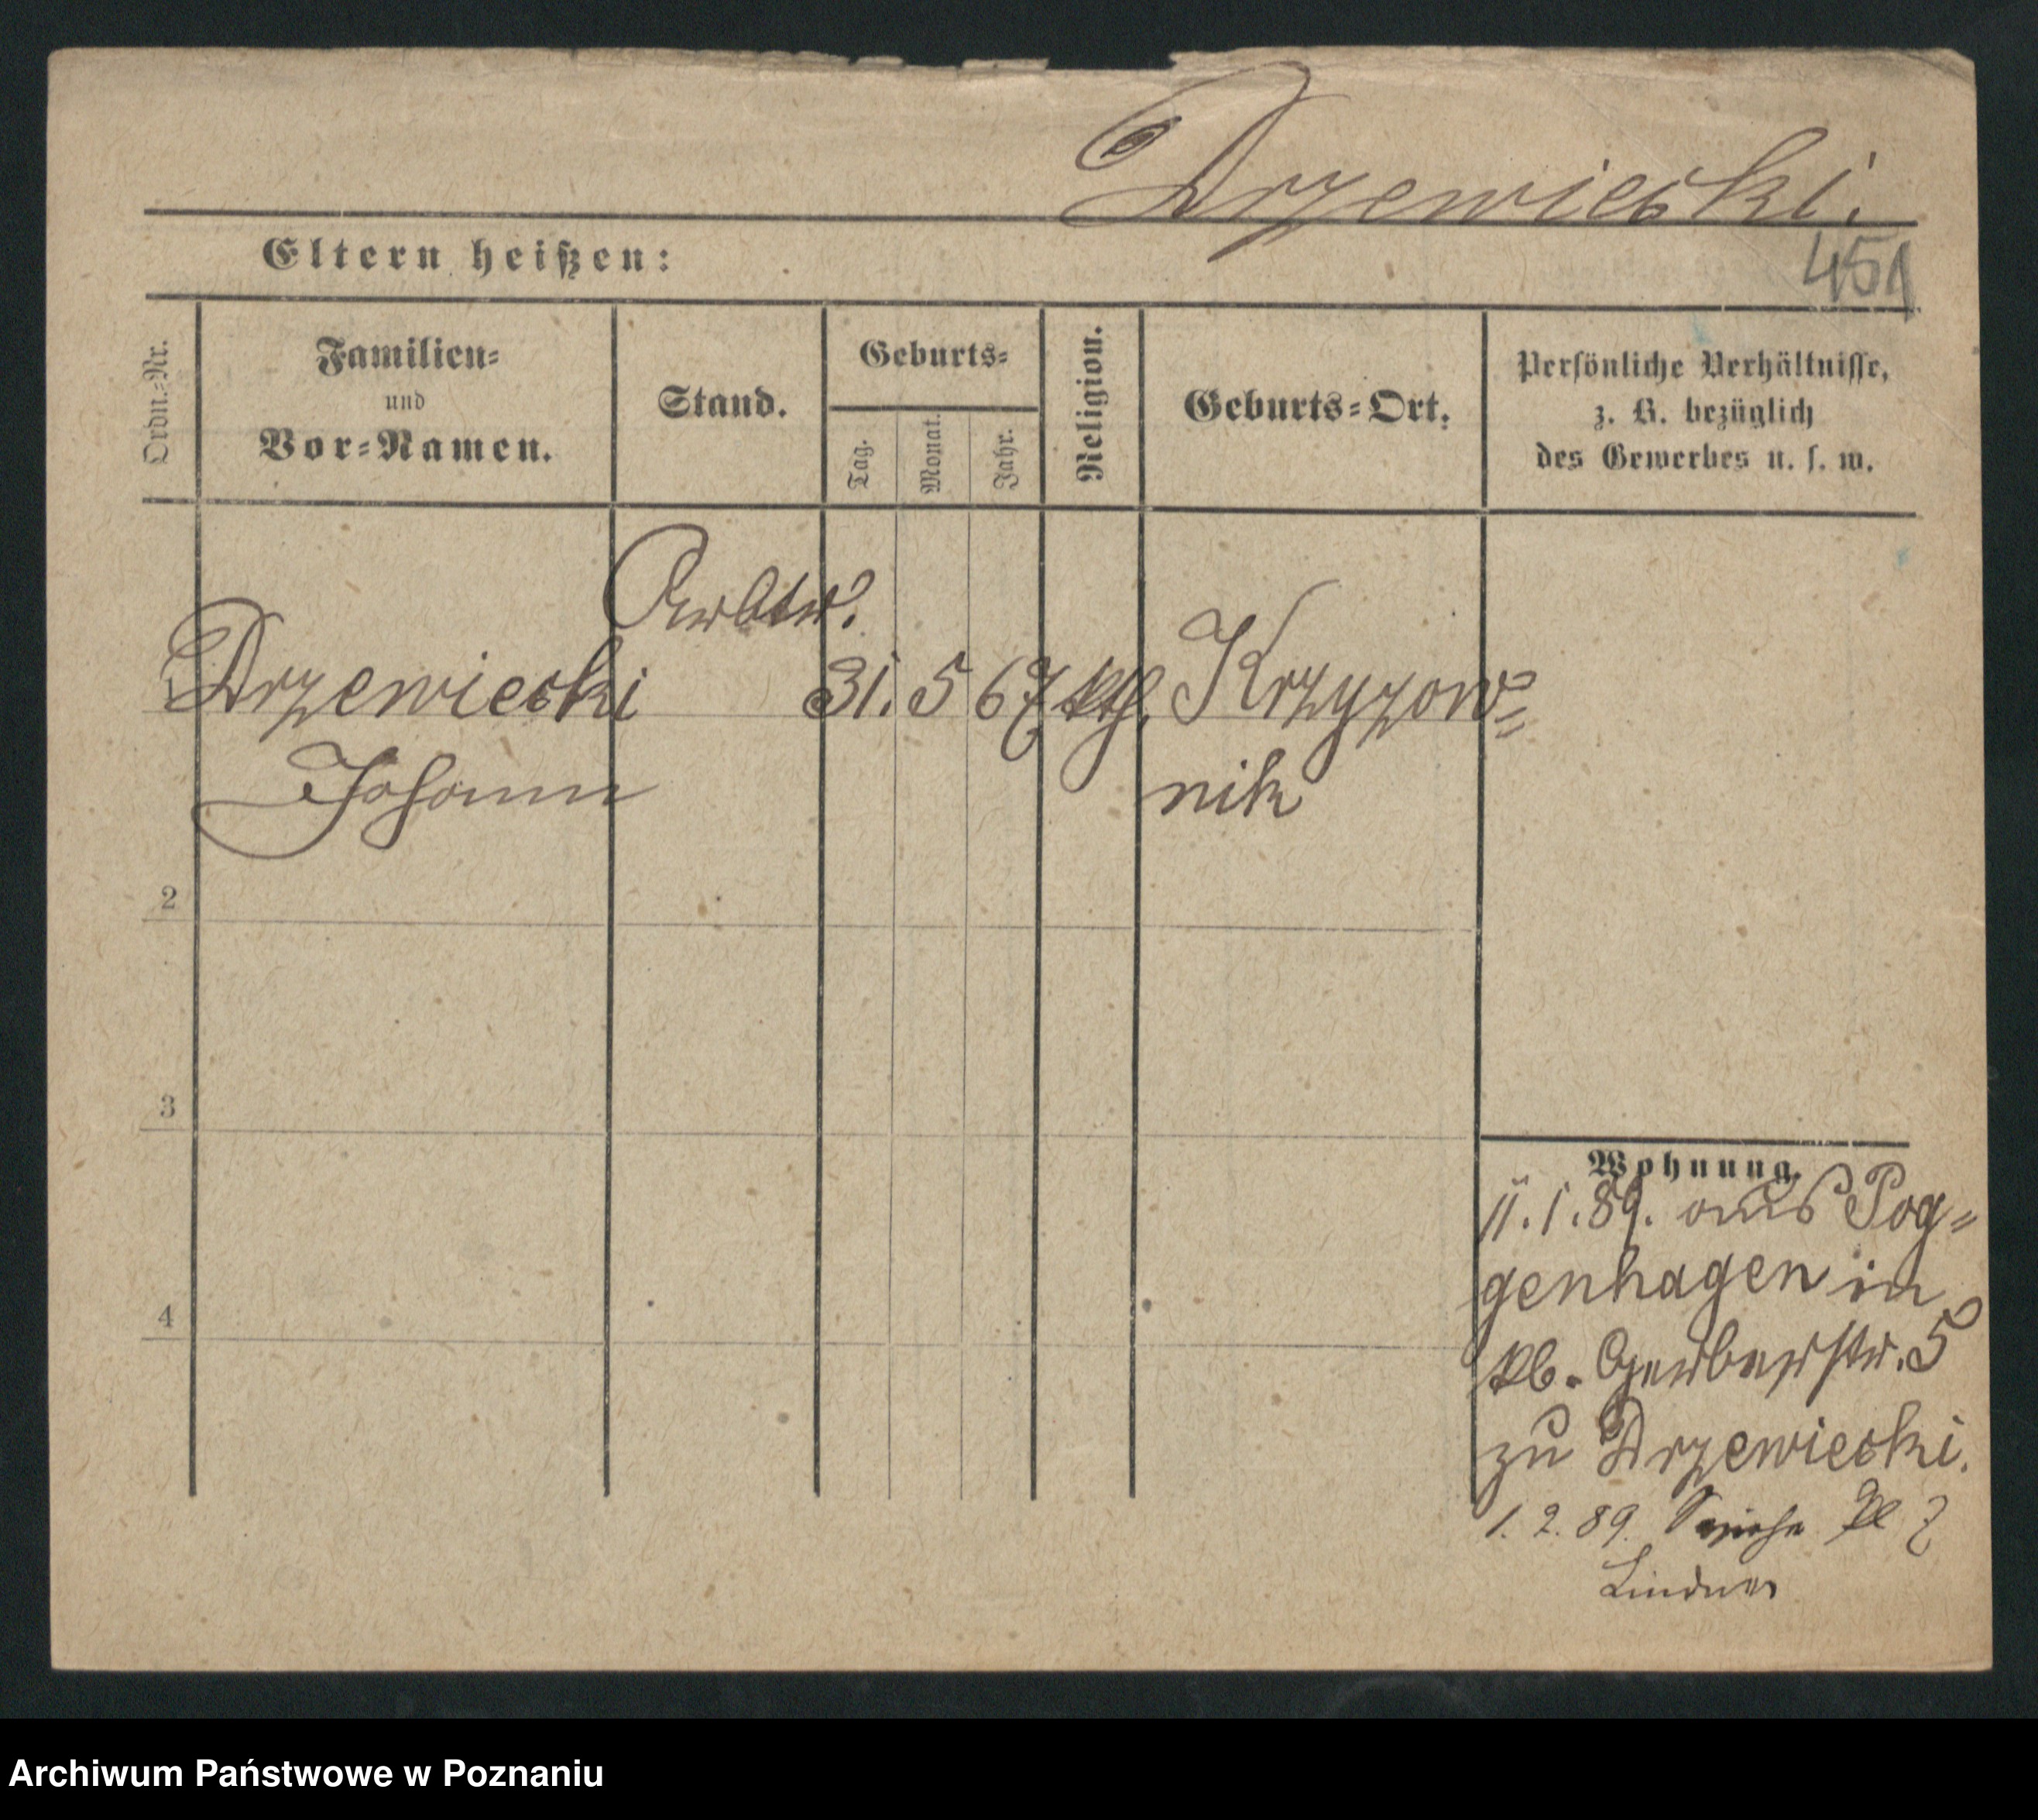 Drzewiecki.
Eltern heißen:
451
Ordn.-Nr.
Familien-
und
Vor-Namen.
Stand.
Geburts-
Tag.
Monat.
Jahr.
Religion.
Geburts-Ort.
Persönliche Verhältnisse,
z. B. bezüglich
des Gewerbes u. s. w.
Arbtr.
1 Drzewiecki 31. 5 67 kth. Krzyzow=
Johann nik
2
3
4
Wohnung.
11.1.89. aus Pog=
genhagen in
kl. Gerberstr. 5
zu Drzewiecki.
1. 2. 89.
Lindner
Archiwum Państwowe w Poznaniu